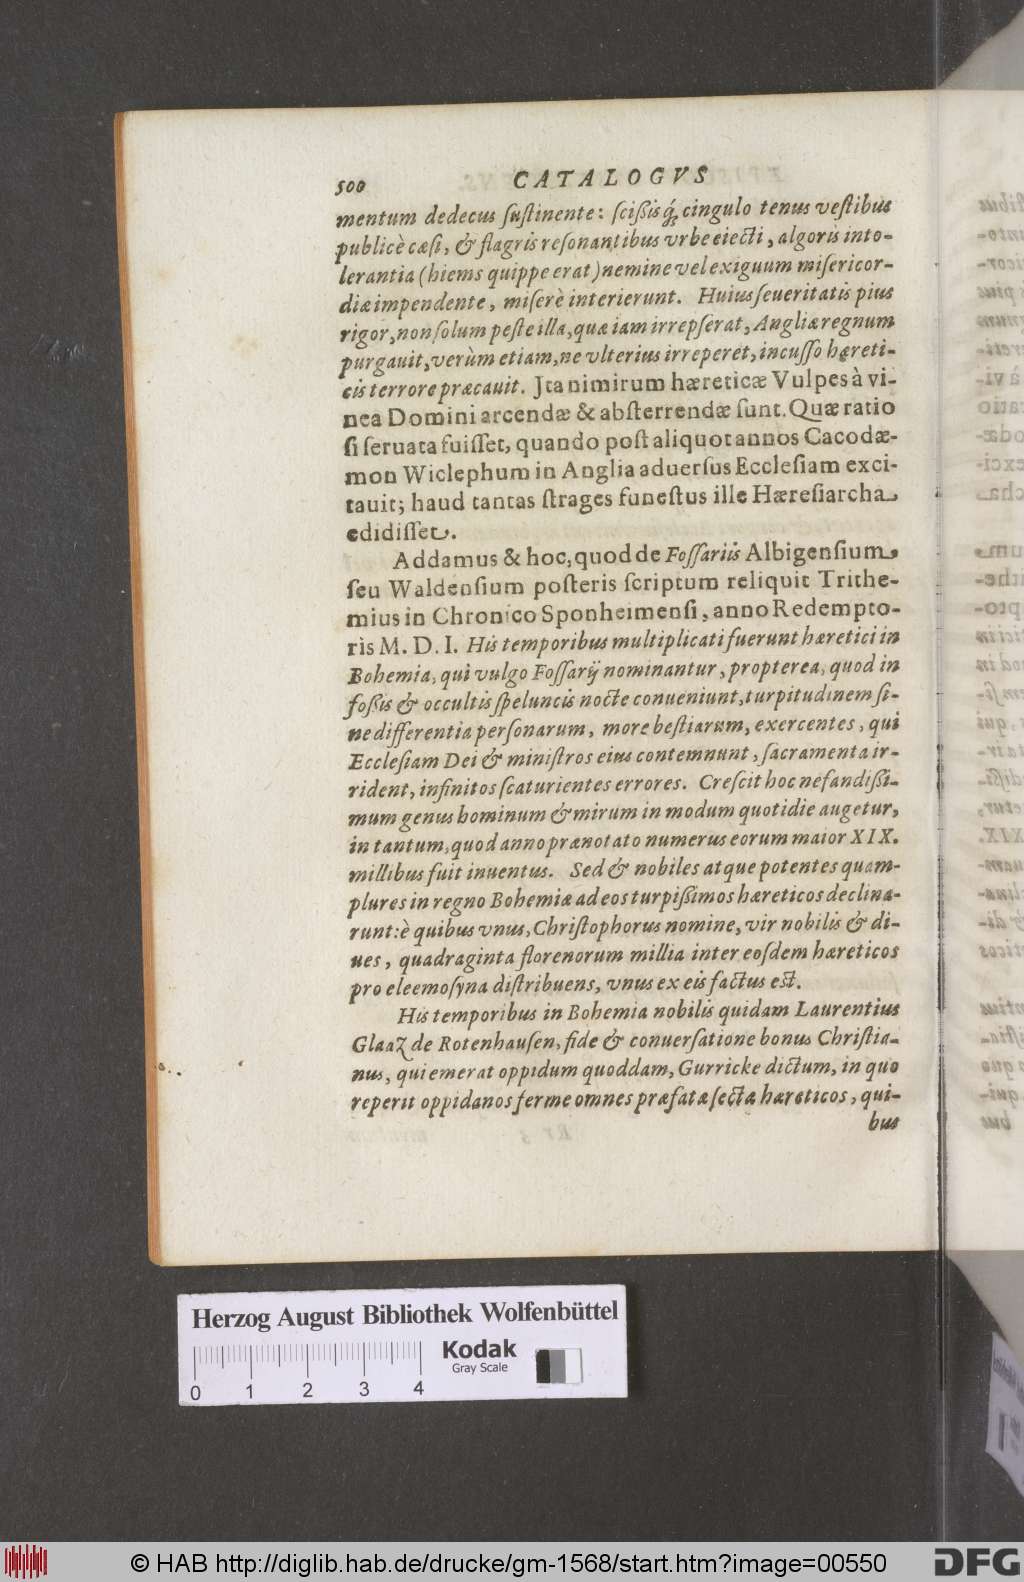 500 CATALOGVS
mentum dedecus ſuſtinente: ſciſsisq́; cingulo tenus veſtibus
publicè cæſi, & flagris reſonantibus vrbe eiecti, algoris into-
lerantia (hiems quippe erat) nemine vel exiguum miſericor-
diæ impendente, miſerè interierunt. Huius ſeueritatis pius
rigor, non ſolum peſte illa, quæ iam irrepſerat, Angliæ regnum
purgauit, verùm etiam, ne vlterius irreperet, incuſſo hæreti-
cis terrore præcauit. Ita nimirum hæreticæ Vulpes à vi-
nea Domini arcendæ & abſterrendæ ſunt. Quæ ratio
ſi ſeruata fuiſſet, quando poſt aliquot annos Cacodæ-
mon Wiclephum in Anglia aduerſus Eccleſiam exci-
tauit; haud tantas ſtrages funeſtus ille Hæreſiarcha
edidiſſet.
Addamus & hoc, quod de Foſſariis Albigenſium
ſeu Waldenſium poſteris ſcriptum reliquit Trithe-
mius in Chronico Sponheimenſi, anno Redempto-
ris M. D. I. His temporibus multiplicati fuerunt hæretici in
Bohemia, qui vulgo Foſſarij nominantur, propterea, quod in
foſsis & occultis ſpeluncis nocte conueniunt, turpitudinem ſi-
ne differentia perſonarum, more beſtiarum, exercentes, qui
Eccleſiam Dei & miniſtros eius contemnunt, ſacramenta ir-
rident, infinitos ſcaturientes errores. Creſcit hoc nefandiſsi-
mum genus hominum & mirum in modum quotidie augetur,
in tantum, quod anno prænotato numerus eorum maior XIX.
millibus fuit inuentus. Sed & nobiles atque potentes quam-
plures in regno Bohemiæ ad eos turpiſsimos hæreticos declina-
runt: è quibus vnus, Chriſtophorus nomine, vir nobilis & di-
ues, quadraginta florenorum millia inter eoſdem hæreticos
pro eleemoſyna diſtribuens, vnus ex eis factus eſt.
His temporibus in Bohemia nobilis quidam Laurentius
Glaaz de Rotenhauſen, fide & conuerſatione bonus Chriſtia-
nus, qui emerat oppidum quoddam, Gurricke dictum, in quo
reperit oppidanos ferme omnes præfatæ ſectæ hæreticos, qui-
bus
Herzog August Bibliothek Wolfenbüttel
Kodak
Gray Scale
0 1 2 3 4
© HAB http://diglib.hab.de/drucke/gm-1568/start.htm?image=00550
DFG